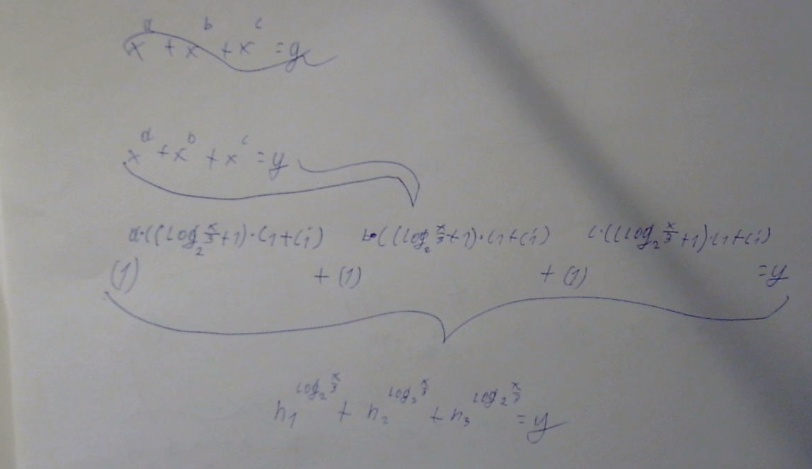 x^a + x^b + x^c = y
x^a + x^b + x^c = y
(1)^{a·((log_2 x/3 + 1)·C_1 + C_i)} + (1)^{b·((log_2 x/3 + 1)·C_1 + C_i)} + (1)^{c·((log_2 x/3 + 1)·C_1 + C_i)} = y
h_1^{log_2 x/3} + h_2^{log_2 x/3} + h_3^{log_2 x/3} = y